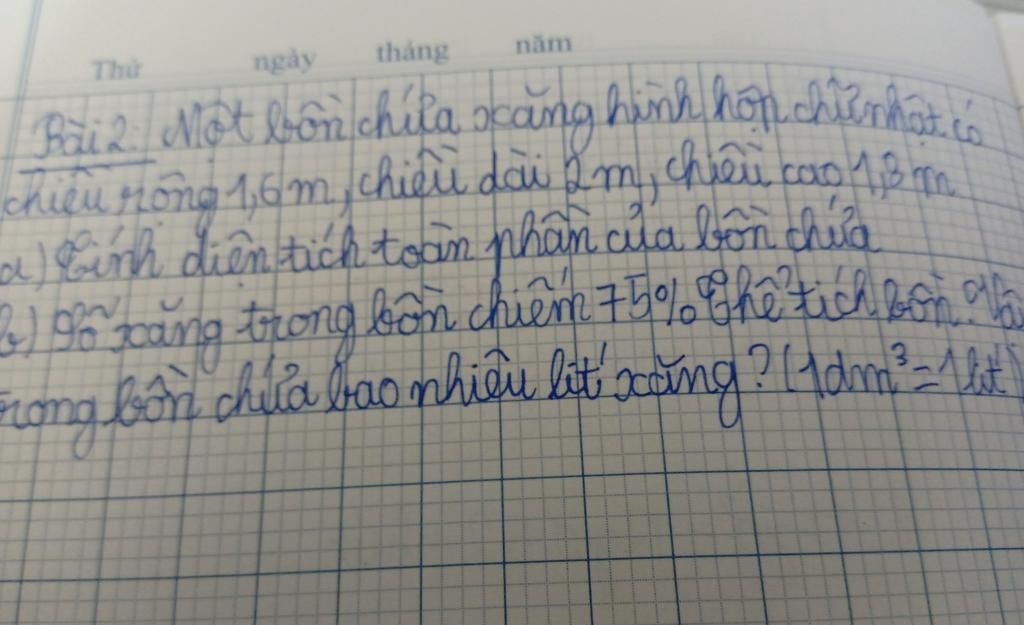 Thứ ngày tháng năm
Bài 2: Một bồn chứa xăng hình hộp chữ nhật có
chiều rộng 1,6 m, chiều dài 2 m, chiều cao 1,8 m
a) Tính diện tích toàn phần của bồn chứa
b) Số xăng trong bồn chiếm 75% thể tích bồn. Hỏi
trong bồn chứa bao nhiêu lít xăng? (1dm³ = 1 lít)